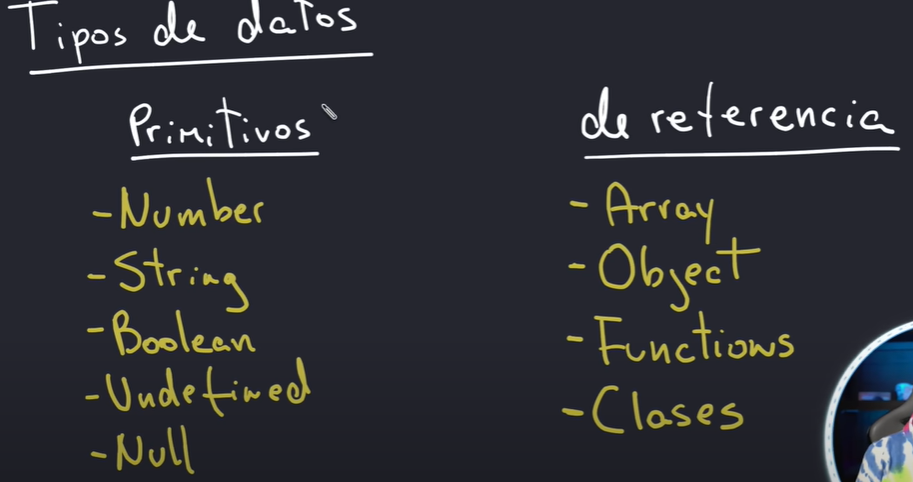 Tipos de datos
Primitivos
- Number
- String
- Boolean
- Undefined
- Null
de referencia
- Array
- Object
- Functions
- Clases